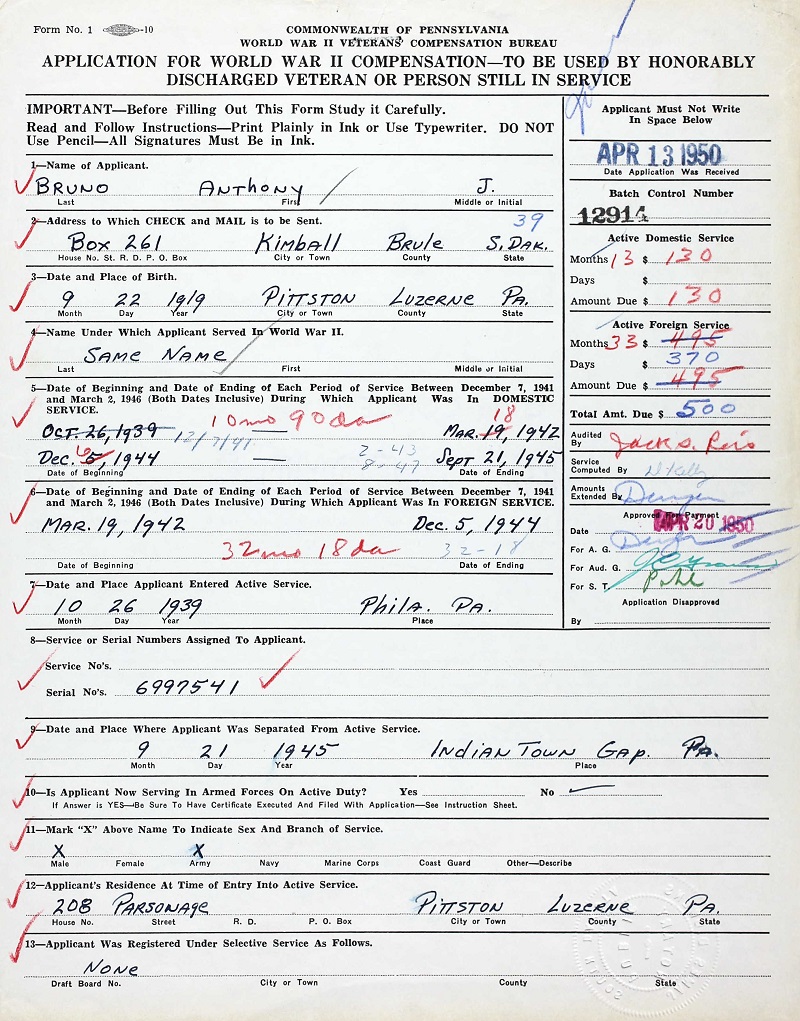 Form No. 1 -10
COMMONWEALTH OF PENNSYLVANIA
WORLD WAR II VETERANS' COMPENSATION BUREAU
APPLICATION FOR WORLD WAR II COMPENSATION—TO BE USED BY HONORABLY
DISCHARGED VETERAN OR PERSON STILL IN SERVICE
IMPORTANT—Before Filling Out This Form Study it Carefully.
Read and Follow Instructions—Print Plainly in Ink or Use Typewriter. DO NOT
Use Pencil—All Signatures Must Be in Ink.
Applicant Must Not Write
In Space Below
APR 13 1950
Date Application Was Received
Batch Control Number
12914
Active Domestic Service
Months 13 $ 130
Days $
Amount Due $ 130
Active Foreign Service
Months 33 $ 495
Days $ 370
Amount Due $ 495
Total Amt. Due $ 500
Audited
By Jack S. Reis
Service
Computed By D Kelly
Amounts
Extended By
Approved For Payment
Date APR 20 1950
For A. G.
For Aud. G.
For S. T. Pohl
Application Disapproved
By
1—Name of Applicant.
BRUNO ANTHONY J.
Last First Middle or Initial
2—Address to Which CHECK and MAIL is to be Sent.
39
BOX 261 KIMBALL BRULE S. DAK.
House No. St. R. D. P. O. Box City or Town County State
3—Date and Place of Birth.
9 22 1919 PITTSTON LUZERNE PA.
Month Day Year City or Town County State
4—Name Under Which Applicant Served In World War II.
SAME NAME
Last First Middle or Initial
5—Date of Beginning and Date of Ending of Each Period of Service Between December 7, 1941
and March 2, 1946 (Both Dates Inclusive) During Which Applicant Was In DOMESTIC
SERVICE.
10 mo 90 da 18
OCT. 26, 1939 12/7/41 — MAR. 19, 1942
2-43
6
DEC. 5, 1944 — 8-47 SEPT 21, 1945
Date of Beginning Date of Ending
6—Date of Beginning and Date of Ending of Each Period of Service Between December 7, 1941
and March 2, 1946 (Both Dates Inclusive) During Which Applicant Was In FOREIGN SERVICE.
MAR. 19, 1942 DEC. 5, 1944
32 mo 18 da 32-18
Date of Beginning Date of Ending
7—Date and Place Applicant Entered Active Service.
10 26 1939 PHILA. PA.
Month Day Year Place
8—Service or Serial Numbers Assigned To Applicant.
Service No's.
Serial No's. 6997541
9—Date and Place Where Applicant Was Separated From Active Service.
9 21 1945 INDIANTOWN GAP. PA.
Month Day Year Place
10—Is Applicant Now Serving In Armed Forces On Active Duty? Yes No
If Answer is YES—Be Sure To Have Certificate Executed And Filed With Application—See Instruction Sheet.
11—Mark "X" Above Name To Indicate Sex and Branch of Service.
X X
Male Female Army Navy Marine Corps Coast Guard Other—Describe
12—Applicant's Residence At Time of Entry Into Active Service.
208 PARSONAGE PITTSTON LUZERNE PA.
House No. Street R. D. P. O. Box City or Town County State
13—Applicant Was Registered Under Selective Service As Follows.
NONE
Draft Board No. City or Town County State